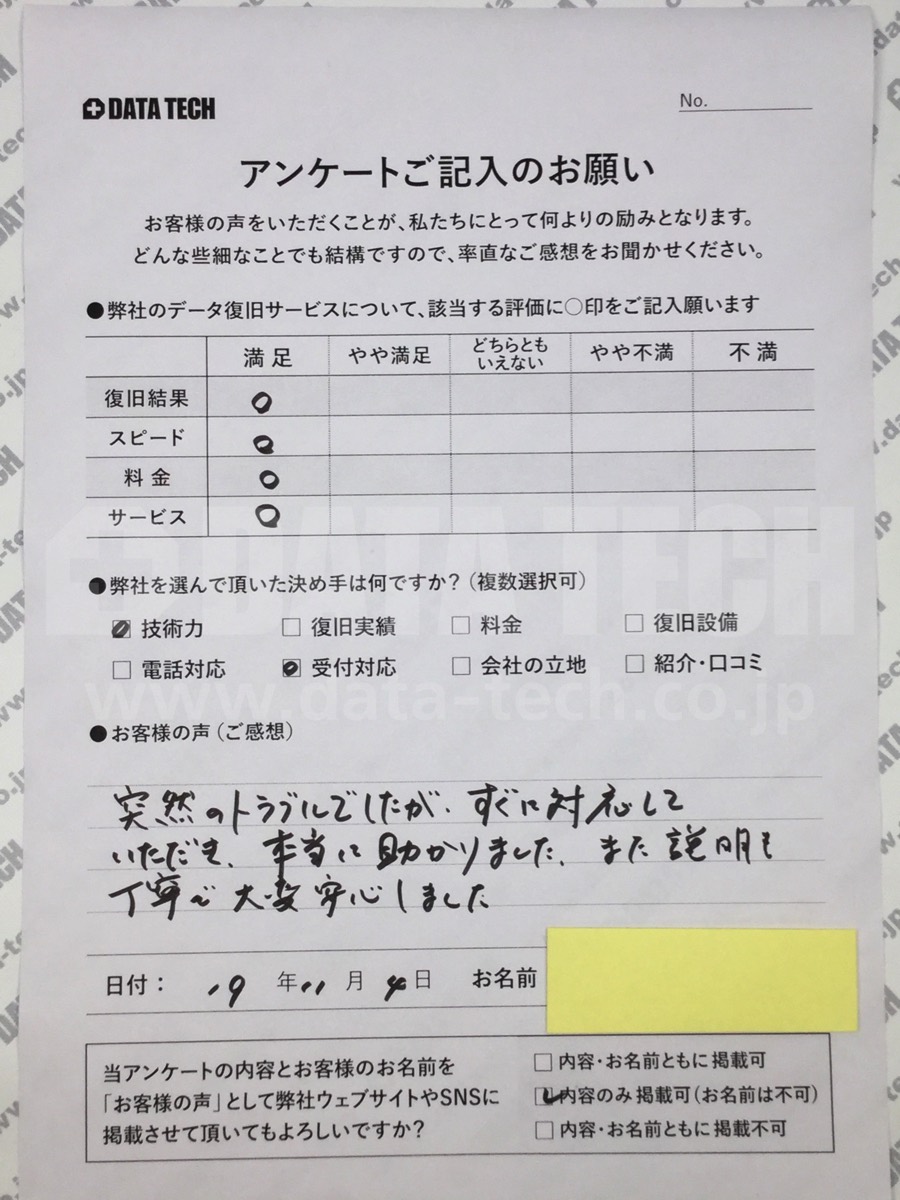 DATA TECH
No.
アンケートご記入のお願い
お客様の声をいただくことが、私たちにとって何よりの励みとなります。
どんな些細なことでも結構ですので、率直なご感想をお聞かせください。
●弊社のデータ復旧サービスについて、該当する評価に○印をご記入願います
満足 やや満足 どちらとも いえない やや不満 不満
復旧結果 ○
スピード ○
料金 ○
サービス ○
DATA TECH
●弊社を選んで頂いた決め手は何ですか？（複数選択可）
☑ 技術力 □ 復旧実績 □ 料金 □ 復旧設備
□ 電話対応 ☑ 受付対応 □ 会社の立地 □ 紹介・口コミ
www.data-tech.co.jp
●お客様の声（ご感想）
突然のトラブルでしたが、すぐに対応して
いただき、本当に助かりました、また説明も
丁寧で大変安心しました
日付： 19 年 11 月 4 日 お名前
当アンケートの内容とお客様のお名前を
「お客様の声」として弊社ウェブサイトやSNSに
掲載させて頂いてもよろしいですか？
□ 内容・お名前ともに掲載可
☑ 内容のみ掲載可（お名前は不可）
□ 内容・お名前ともに掲載不可